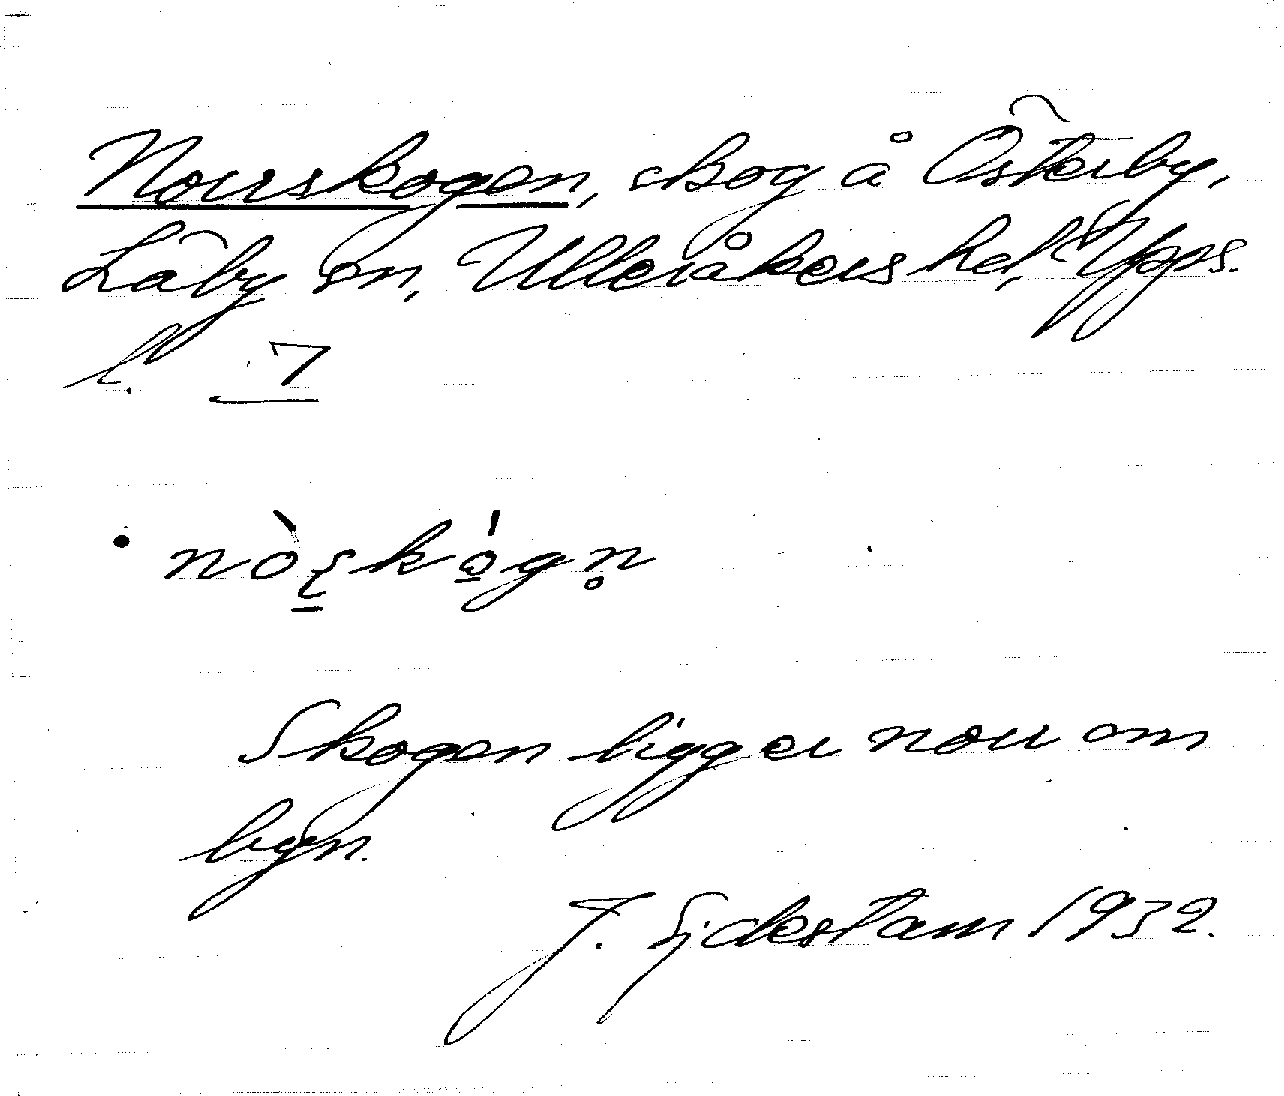 Norrskogen, skog å Österby,
Läby sn, Ulleråkers hd, Upps.
l. 7
nòʂkó̱gn̥
Skogen ligger norr om
byn.
J. Sjdestam 1932.